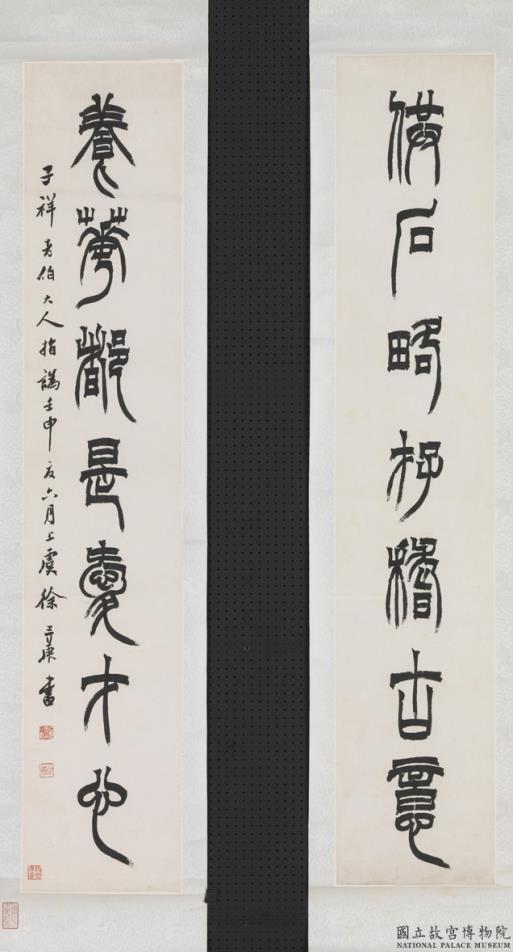 供石略存稽古意
養華都是愛才心
子祥老伯大人指譌壬申夏六月上虞徐三庚書
國立故宮博物院
NATIONAL PALACE MUSEUM